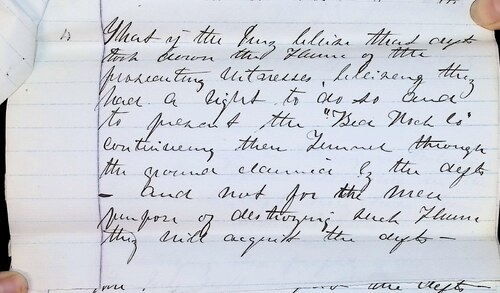 5 That if the Jury believe that defts
took down the Flume of the
prosecuting witnesses, believing they
had a right to do so and
to prevent the "Bed Rock Co"
continuing their Tunnel through
the ground claimed by the defts
- and not for the mere
purpose of destroying such Flume
they will acquit the defts -
the defts